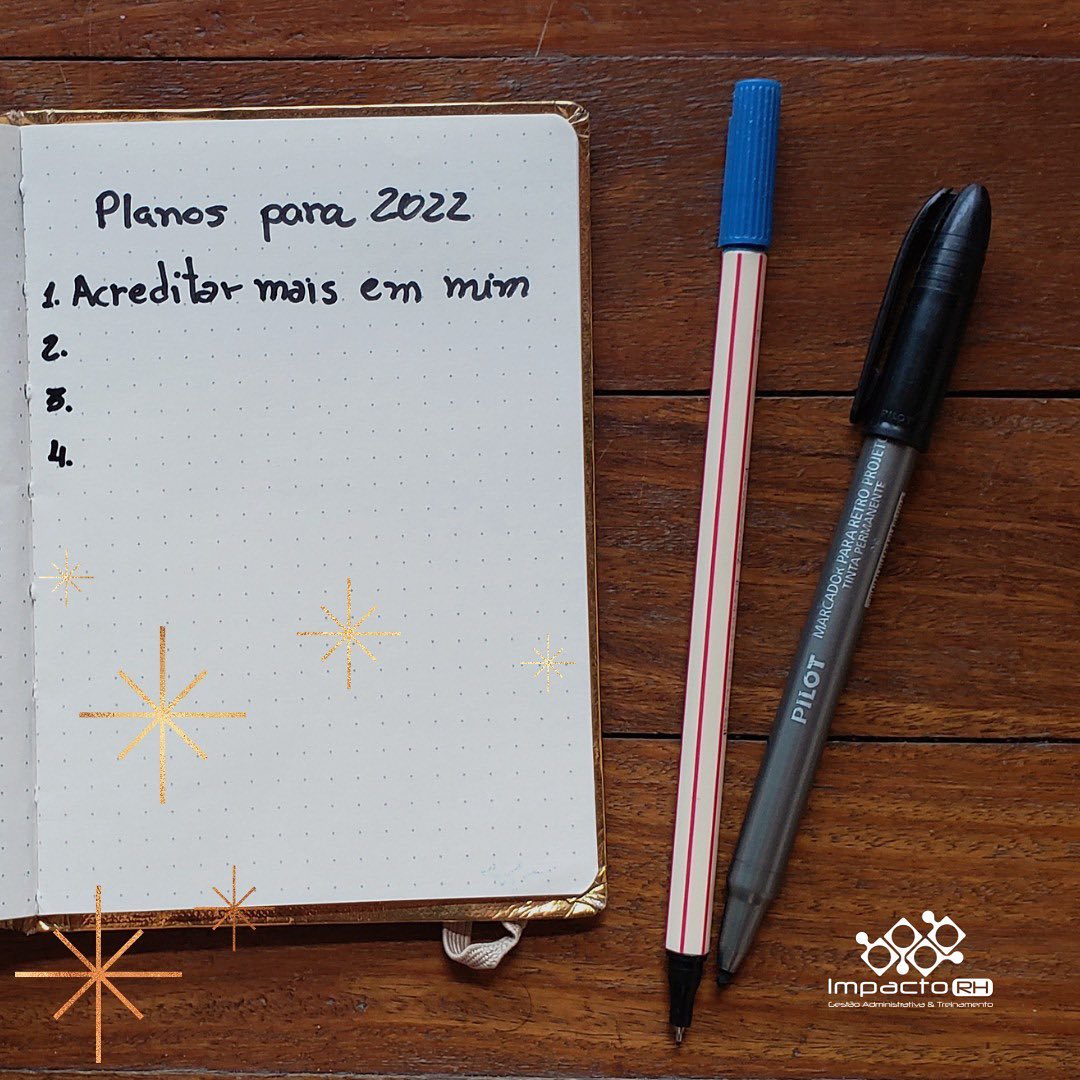 Planos para 2022
1. Acreditar mais em mim
2.
3.
4.
PILOT
PILOT
MARCADOR PARA RETRO PROJETO
TINTA PERMANENTE
Impacto RH
Gestão Administrativa & Treinamento